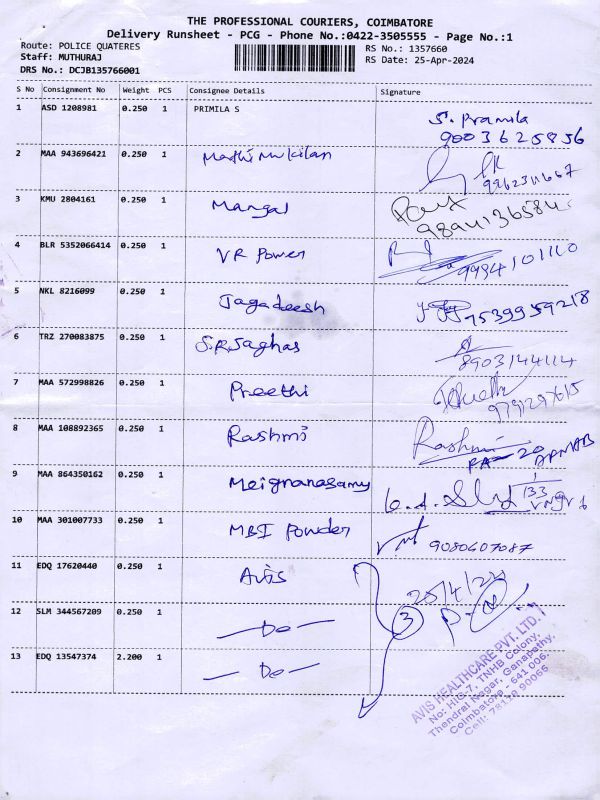 THE PROFESSIONAL COURIERS, COIMBATORE
Delivery Runsheet - PCG - Phone No.:0422-3505555 - Page No.:1
Route: POLICE QUATERES RS No.: 1357660
Staff: MUTHURAJ RS Date: 25-Apr-2024
DRS No.: DCJB135766001
S No Consignment No Weight PCS Consignee Details Signature
1 ASD 1208981 0.250 1 PRIMILA S S. Pramila
9003625856
2 MAA 943696421 0.250 1 Mathi Mukilan
3 KMU 2804161 0.250 1 Mangal
4 BLR 5352066414 0.250 1 VR Power
9994101110
5 NKL 8216099 0.250 1 Jagadeesh 7539959218
6 TRZ 270083875 0.250 1 S.R.Jaghas
8903144114
7 MAA 572998826 0.250 1 Preethi
8 MAA 108892365 0.250 1 Rashmi Rashmi
20
9 MAA 864350162 0.250 1 Meignanasamy 133
10 MAA 301007733 0.250 1 MBI Powder 9080607087
11 EDQ 17620440 0.250 1 Avis 25/4/24
12 SLM 344567209 0.250 1 — Do — 3
13 EDQ 13547374 2.200 1 — Do —
AVIS HEALTHCARE PVT. LTD.
No: HIG-7, TNHB Colony,
Thendral Nagar, Ganapathy,
Coimbatore - 641 006.
Cell: 78129 90066